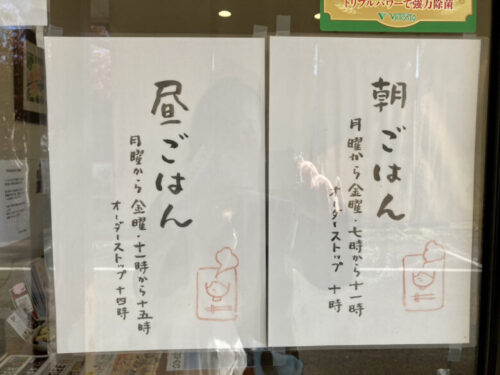 トリプルパワーで強力除菌
VICTORIO
朝ごはん
月曜から金曜・七時から十一時
オーダーストップ 十時
昼ごはん
月曜から金曜・十一時から十五時
オーダーストップ 十四時